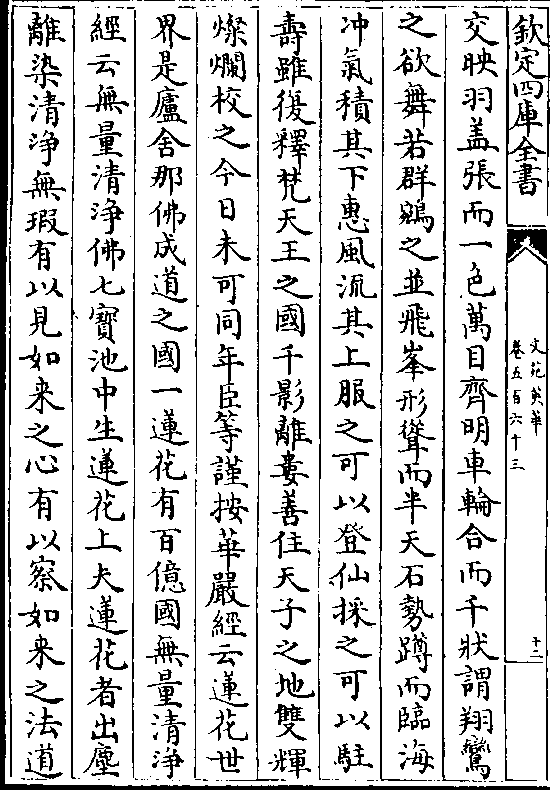 欽定四庫全書
文苑英華
卷五百六十三
十二
交映羽盖張而一色萬目齊明車輪合而千狀謂翔鸞
之欲舞若群鵷之並飛峯形聳而半天石勢蹲而臨海
冲氣積其下惠風流其上服之可以登仙採之可以駐
壽雖復釋梵天王之國千影離婁善住天子之地雙輝
燦爛校之今日未可同年臣等謹按華嚴經云蓮花世
界是廬舍那佛成道之國一蓮花有百億國無量清淨
經云無量清淨佛七寶池中生蓮花上夫蓮花者出塵
離染清淨無瑕有以見如来之心有以察如来之法道